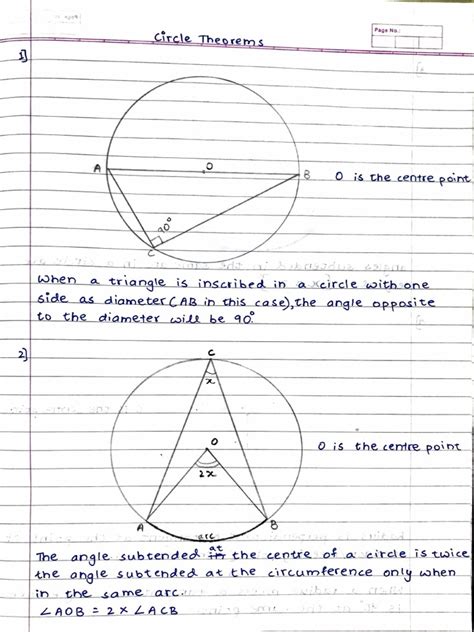 Page No.:
Circle Theorems
1]
A
O
B
O is the centre point
90°
C
When a triangle is inscribed in a circle with one
side as diameter (AB in this case), the angle opposite
to the diameter will be 90°.
2]
C
x
O
O is the centre point
2x
A
B
arc
The angle subtended at the centre of a circle is twice
the angle subtended at the circumference only when
in the same arc.
∠AOB = 2 x ∠ACB